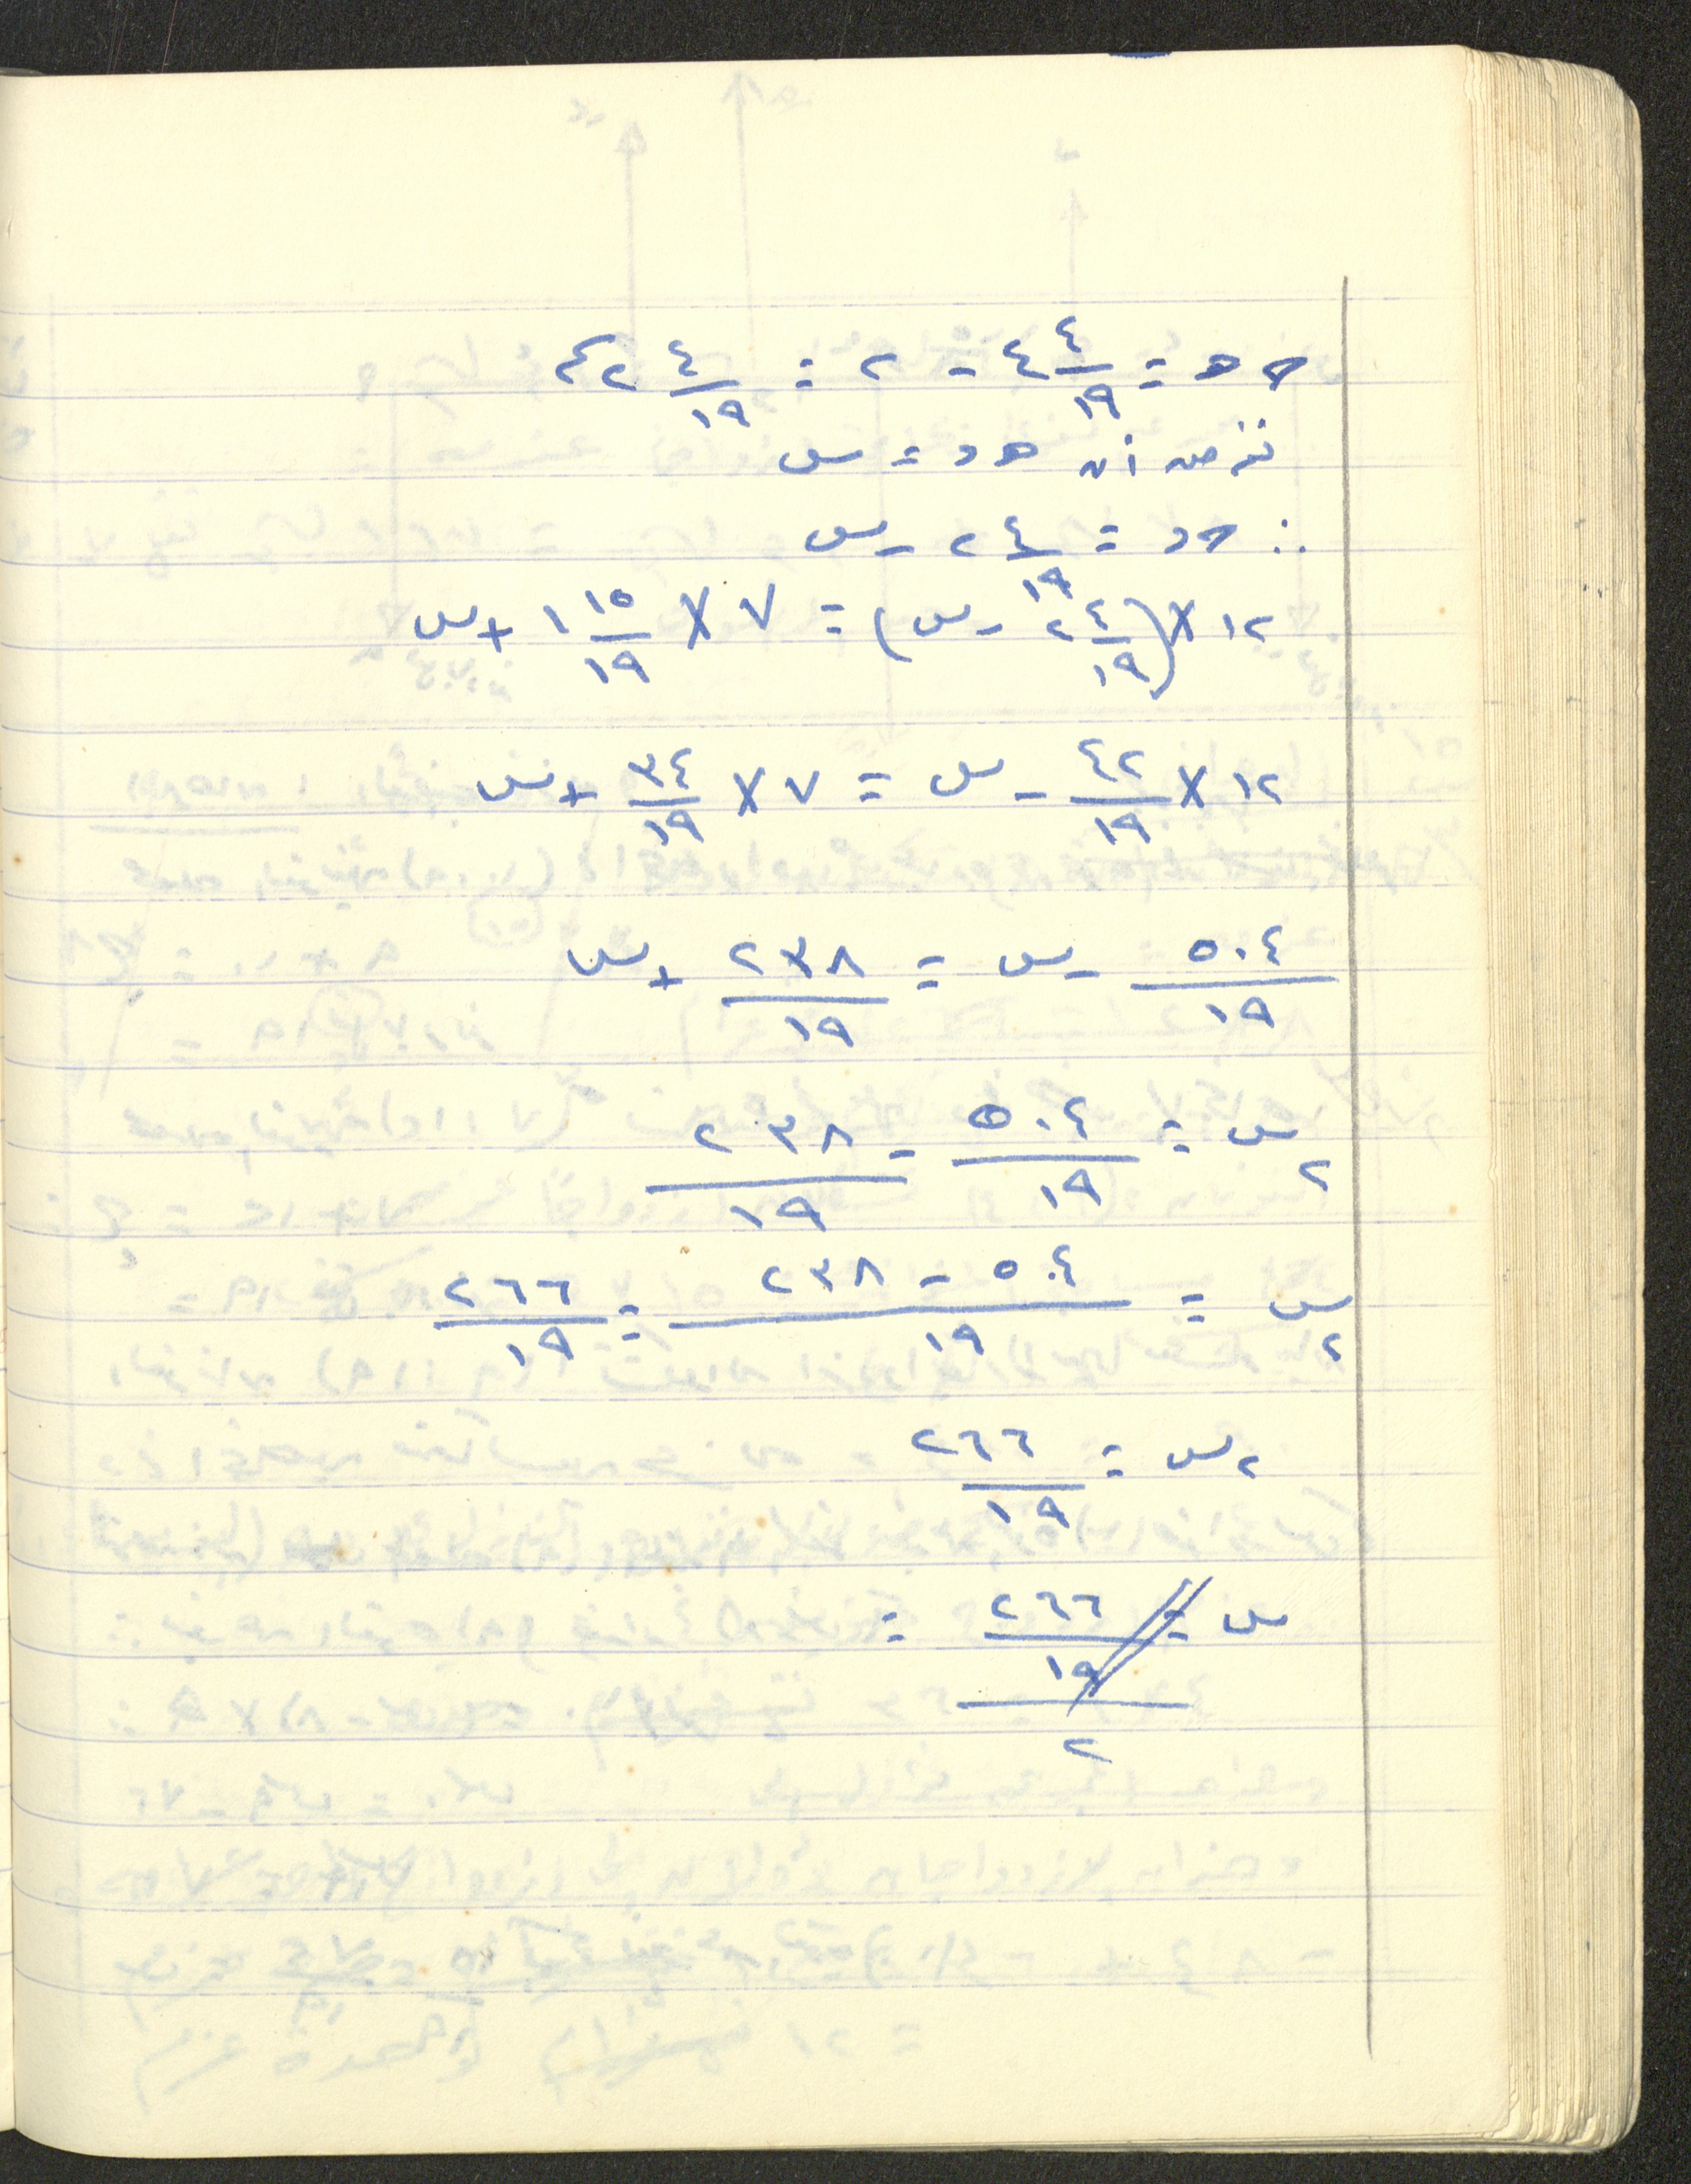 حـ هـ = ٤ ٤/١٩ - ٢ = ٢ ٤/١٩ م
نفرض أن هـ د = س
∴ حـ د = ٢ ٤/١٩ - س
١٢ × (٢ ٤/١٩ - س) = ٧ × ١ ١٥/١٩ + س
١٢ × ٤٢/١٩ - س = ٧ × ٣٤/١٩ + س
٥٠٤/١٩ - س = ٢٣٨/١٩ + س
٢س = ٥٠٤/١٩ - ٢٣٨/١٩
٢س = (٥٠٤ - ٢٣٨)/١٩ = ٢٦٦/١٩
٢س = ٢٦٦/١٩
س = ٢٦٦/١٩/٢ =